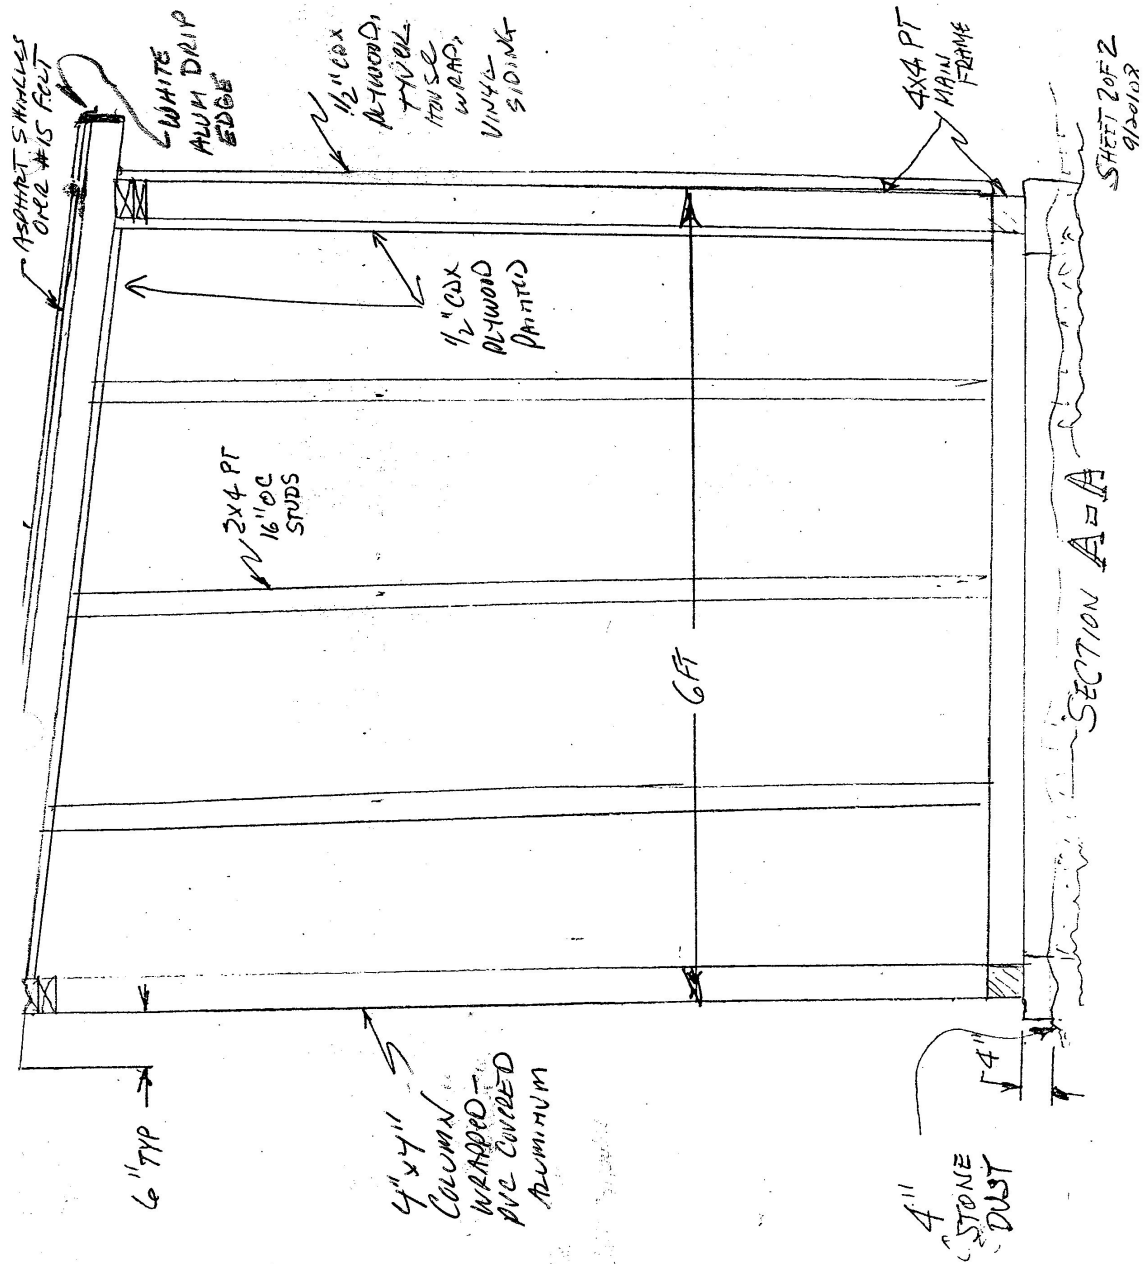 ASPHALT SHINGLES
OVER #15 FELT
WHITE
ALUM DRIP
EDGE
1/2" CDX
PLYWOOD,
TYVEK
HOUSE
WRAP,
VINYL
SIDING
4X4 PT
MAIN
FRAME
1/2" CDX
PLYWOOD
PAINTED
2X4 PT
16" OC
STUDS
6 FT
6" TYP
4" x 4"
COLUMN
WRAPPED -
PVC COVERED
ALUMINUM
4"
4"
STONE
DUST
SECTION A-A
SHEET 2 OF 2
9/20/08